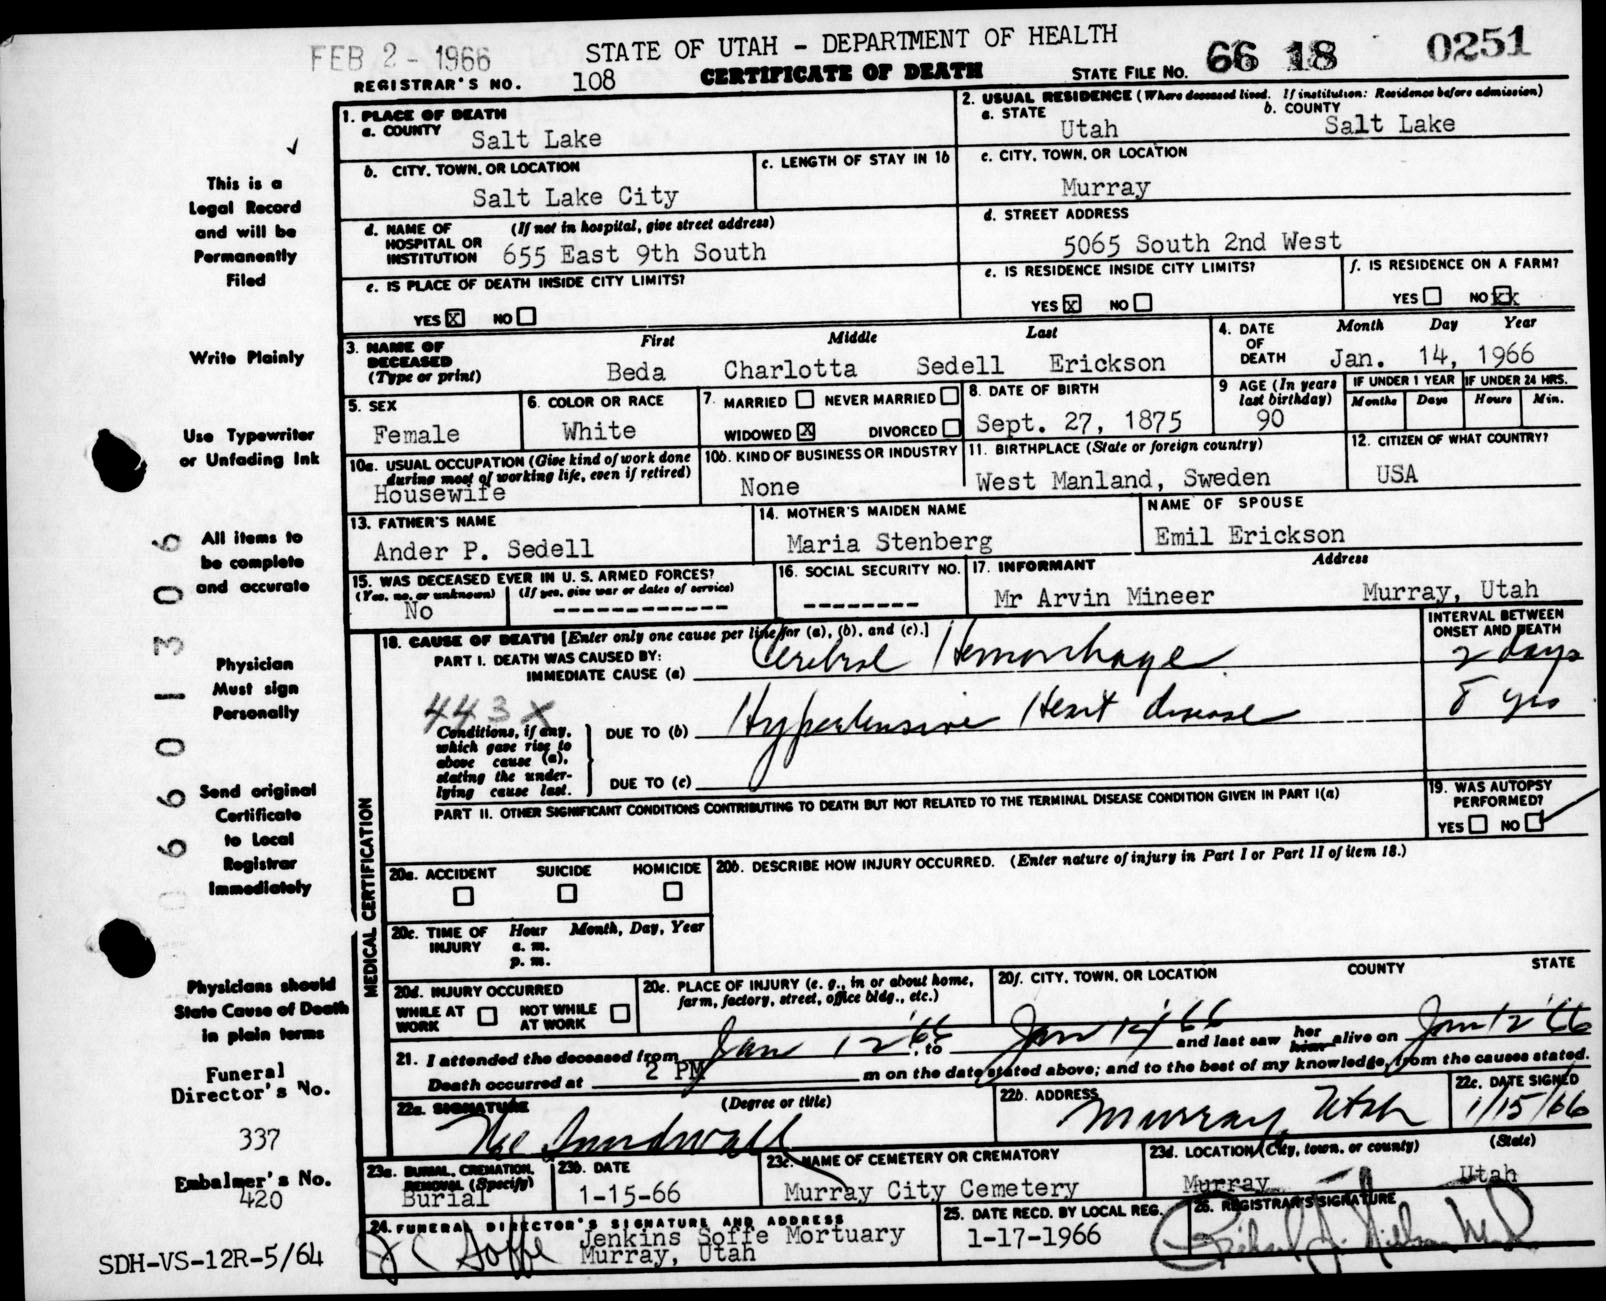 FEB 2 - 1966
STATE OF UTAH - DEPARTMENT OF HEALTH
66 18
0251
REGISTRAR'S NO. 108
CERTIFICATE OF DEATH
STATE FILE NO.
1. PLACE OF DEATH
a. COUNTY
Salt Lake
2. USUAL RESIDENCE (Where deceased lived. If institution: Residence before admission)
a. STATE
Utah
b. COUNTY
Salt Lake
b. CITY, TOWN, OR LOCATION
Salt Lake City
c. LENGTH OF STAY IN 1b
c. CITY, TOWN, OR LOCATION
Murray
d. NAME OF HOSPITAL OR INSTITUTION
(If not in hospital, give street address)
655 East 9th South
d. STREET ADDRESS
5065 South 2nd West
e. IS PLACE OF DEATH INSIDE CITY LIMITS?
YES X NO
e. IS RESIDENCE INSIDE CITY LIMITS?
YES X NO
f. IS RESIDENCE ON A FARM?
YES NO XX
3. NAME OF DECEASED
(Type or print)
First Middle Last
Beda Charlotta Sedell Erickson
4. DATE OF DEATH
Month Day Year
Jan. 14, 1966
5. SEX
Female
6. COLOR OR RACE
White
7. MARRIED NEVER MARRIED
WIDOWED X DIVORCED
8. DATE OF BIRTH
Sept. 27, 1875
9 AGE (In years last birthday)
90
IF UNDER 1 YEAR
Months Days
IF UNDER 24 HRS.
Hours Min.
10a. USUAL OCCUPATION (Give kind of work done during most of working life, even if retired)
Housewife
10b. KIND OF BUSINESS OR INDUSTRY
None
11. BIRTHPLACE (State or foreign country)
West Manland, Sweden
12. CITIZEN OF WHAT COUNTRY?
USA
13. FATHER'S NAME
Ander P. Sedell
14. MOTHER'S MAIDEN NAME
Maria Stenberg
NAME OF SPOUSE
Emil Erickson
15. WAS DECEASED EVER IN U. S. ARMED FORCES?
(Yes, no, or unknown) (If yes, give war or dates of service)
No ------------
16. SOCIAL SECURITY NO.
--------
17. INFORMANT Address
Mr Arvin Mineer Murray, Utah
MEDICAL CERTIFICATION
18. CAUSE OF DEATH [Enter only one cause per line for (a), (b), and (c).]
PART I. DEATH WAS CAUSED BY:
IMMEDIATE CAUSE (a) Cerebral Hemorrhage
INTERVAL BETWEEN ONSET AND DEATH
2 days
443X
Conditions, if any, which gave rise to above cause (a), stating the underlying cause last.
DUE TO (b) Hypertensive Heart disease
8 yrs
DUE TO (c)
PART II. OTHER SIGNIFICANT CONDITIONS CONTRIBUTING TO DEATH BUT NOT RELATED TO THE TERMINAL DISEASE CONDITION GIVEN IN PART I(a)
19. WAS AUTOPSY PERFORMED?
YES NO
20a. ACCIDENT SUICIDE HOMICIDE
20b. DESCRIBE HOW INJURY OCCURRED. (Enter nature of injury in Part I or Part II of item 18.)
20c. TIME OF INJURY
Hour Month, Day, Year
a. m.
p. m.
20d. INJURY OCCURRED
WHILE AT WORK NOT WHILE AT WORK
20e. PLACE OF INJURY (e. g., in or about home, farm, factory, street, office bldg., etc.)
20f. CITY, TOWN, OR LOCATION COUNTY STATE
21. I attended the deceased from Jan 12 '66, to Jan 14 '66 and last saw her him alive on Jan 12 '66
Death occurred at 2 PM m on the date stated above; and to the best of my knowledge, from the causes stated.
22a. SIGNATURE (Degree or title)
Sundwall
22b. ADDRESS
Murray, Utah
22c. DATE SIGNED
1/15/66
23a. BURIAL, CREMATION, REMOVAL (Specify)
Burial
23b. DATE
1-15-66
23c. NAME OF CEMETERY OR CREMATORY
Murray City Cemetery
23d. LOCATION (City, town, or county) (State)
Murray Utah
24. FUNERAL DIRECTOR'S SIGNATURE AND ADDRESS
Soffe
Jenkins Soffe Mortuary
Murray, Utah
25. DATE RECD. BY LOCAL REG.
1-17-1966
26. REGISTRAR'S SIGNATURE
This is a
Legal Record
and will be
Permanently
Filed
Write Plainly
Use Typewriter
or Unfading Ink
All items to
be complete
and accurate
Physician
Must sign
Personally
Send original
Certificate
to Local
Registrar
Immediately
Physicians should
State Cause of Death
in plain terms
Funeral
Director's No.
337
Embalmer's No.
420
SDH-VS-12R-5/64
066013306